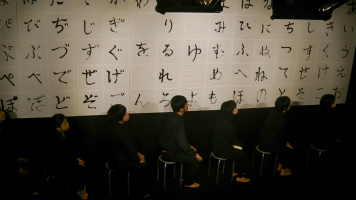 いうえ
きくけこ
しすせそ
ちつてと
にぬねの
ひふへほ
みむめも
ゆよ
りるれろ
をん
ぎぐげご
じずぜぞ
ぢづでど
びぶべぼ
ぷぺぽ